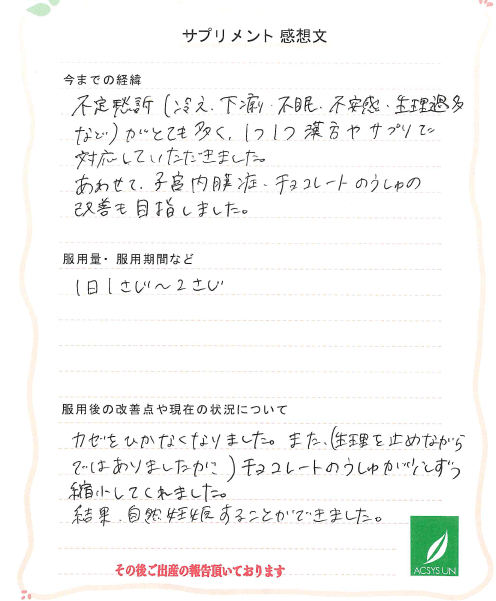 サプリメント 感想文
今までの経緯
不定愁訴(冷え、下痢・不眠・不安感・生理過多
など)がとても多く、1つ1つ漢方やサプリで
対応していただきました。
あわせて、子宮内膜症・チョコレートのうしゅの
改善も目指しました。
服用量・服用期間など
1日1さじ〜2さじ
服用後の改善点や現在の状況について
カゼをひかなくなりました。また、(生理を止めながら
ではありましたが)チョコレートのうしゅが少しずつ
縮小してくれました。
結果、自然妊娠することができました。
その後ご出産の報告頂いております
ACSYSUN